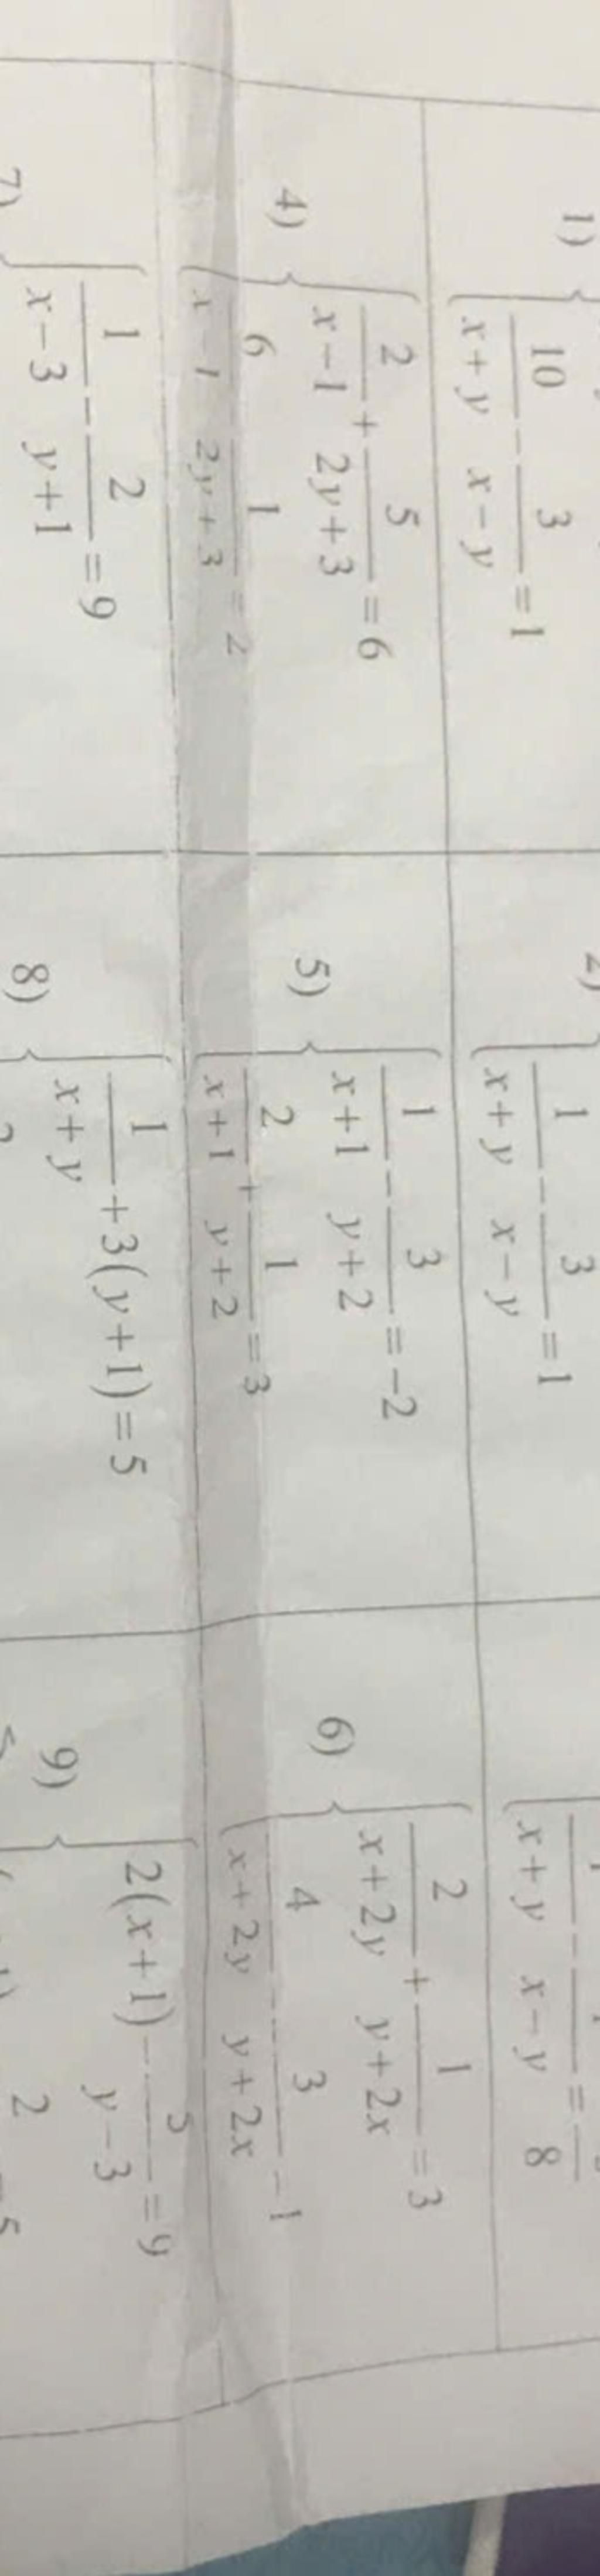 1) { 10/(x+y) - 3/(x-y) = 1
{ 1/(x+y) - 3/(x-y) = 1
x+y x-y 8
4) { 2/(x-1) + 5/(2y+3) = 6
6/(x-1) 1/(2y+3) = 2
5) { 1/(x+1) - 3/(y+2) = -2
2/(x+1) + 1/(y+2) = 3
6) { 2/(x+2y) + 1/(y+2x) = 3
4/(x+2y) - 3/(y+2x) - 1
7) { 1/(x-3) - 2/(y+1) = 9
8) { 1/(x+y) + 3(y+1) = 5
9) { 2(x+1) - 5/(y-3) = 9